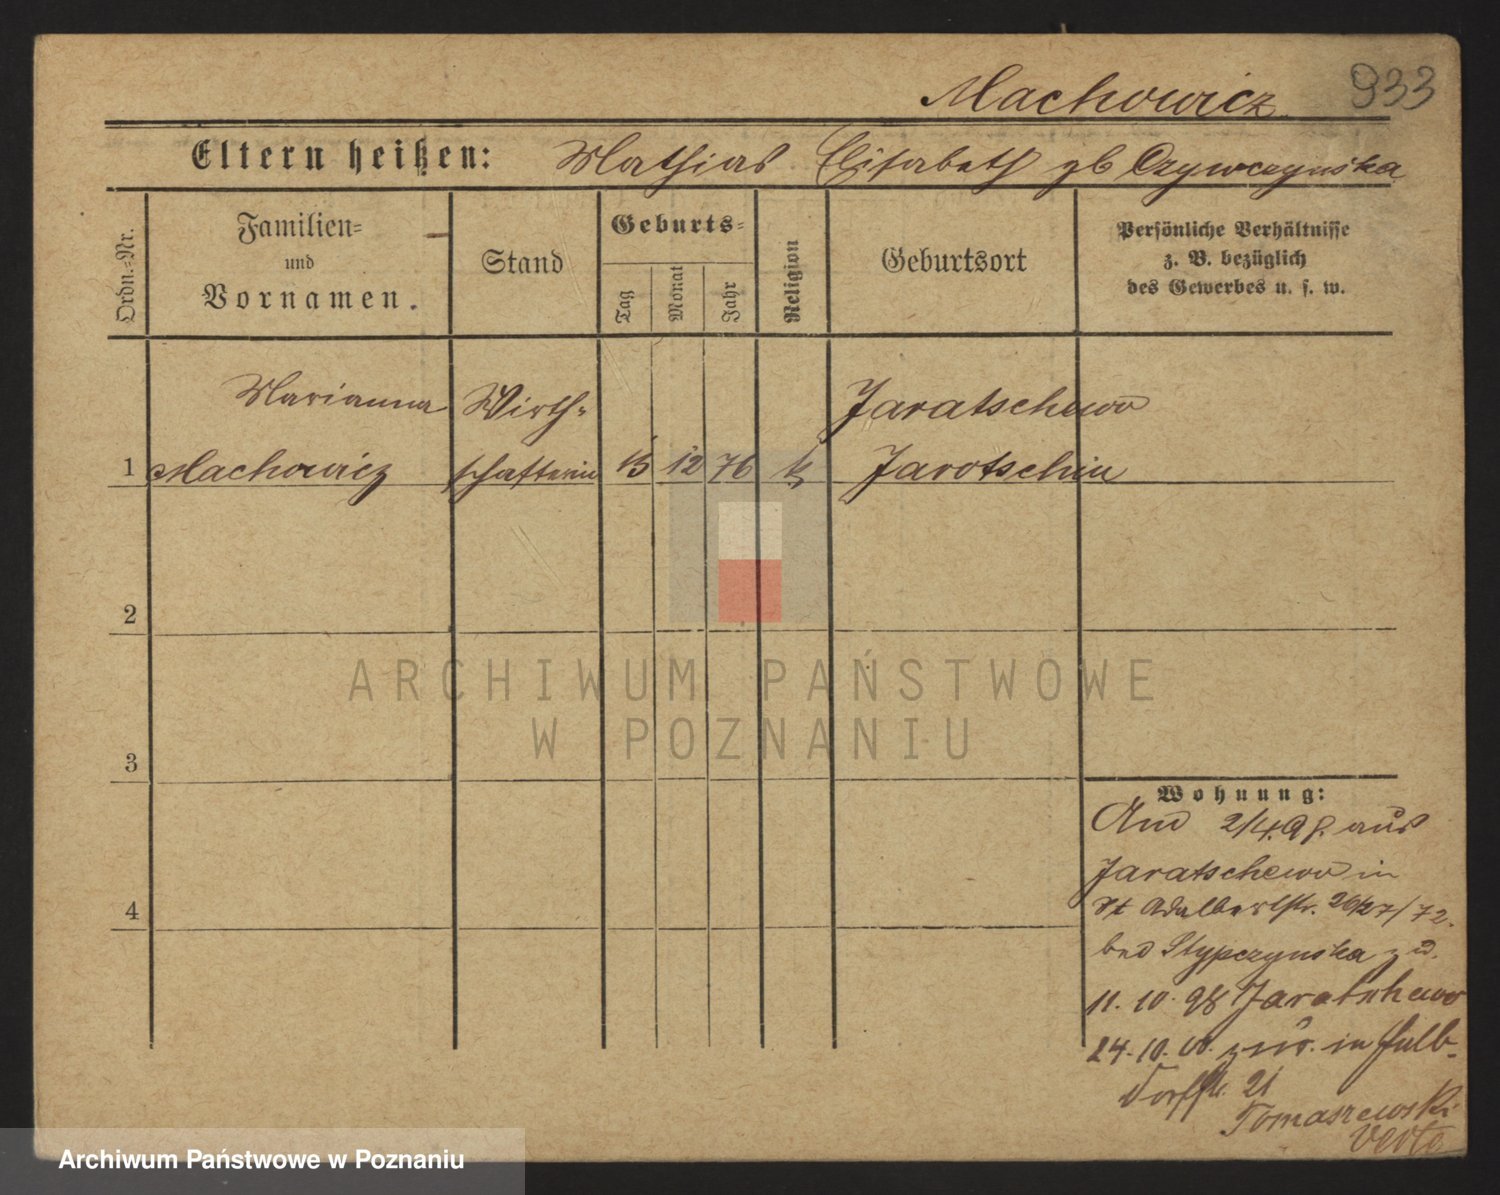 Machowicz 933
Eltern heißen: Mathias Elisabeth gb Czywczynska
Ordn.-Nr.
Familien-
und
Vornamen.
Stand
Geburts-
Tag
Monat
Jahr
Religion
Geburtsort
Persönliche Verhältnisse
z. B. bezüglich
des Gewerbes u. s. w.
Marianna Wirth- Jaratschewo
1 Machowicz schafterin 15 12 76 k Jarotschin
2
3
4
ARCHIWUM PAŃSTWOWE
W POZNANIU
Wohnung:
2/4.98. aus
Jaratschewo in
St Adalbertstr. 26/27/72.
bei Stypczynska
11. 10. 98 Jaratschewo
24. 10. 00. zur. in Halb-
dorfstr. 21
Tomaszewski
Verte
Archiwum Państwowe w Poznaniu